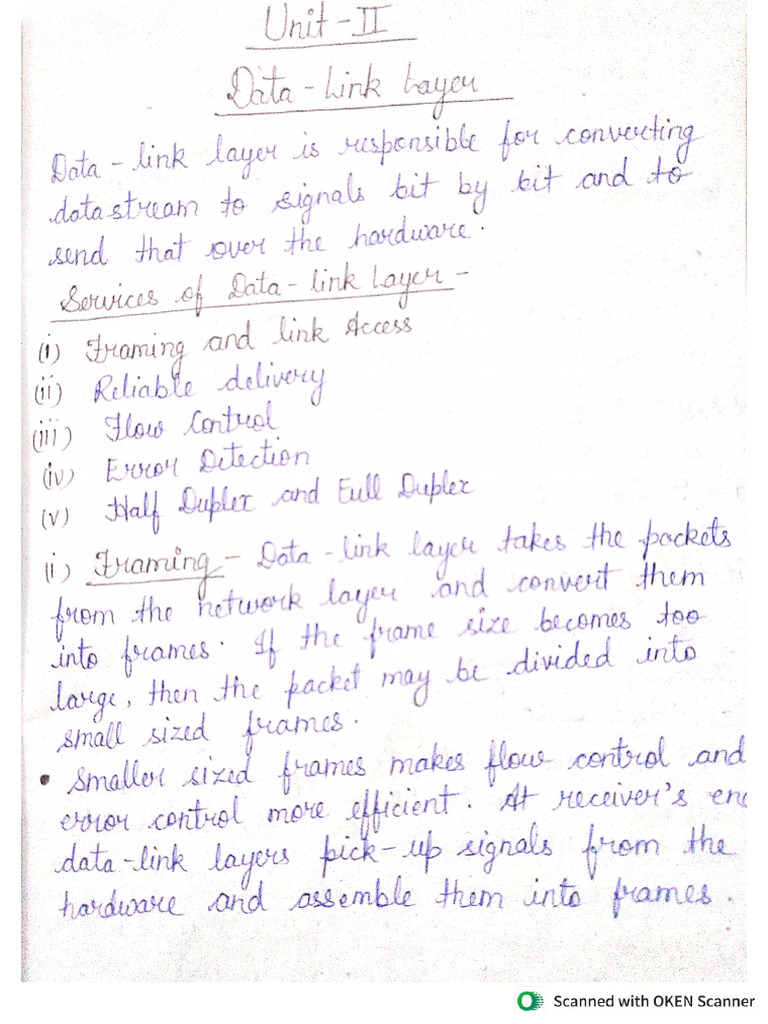 Unit - II
Data - Link Layer
Data - link layer is responsible for converting
data stream to signals bit by bit and to
send that over the hardware.
Services of Data - link Layer -
(i) Framing and link Access
(ii) Reliable delivery
(iii) Flow Control
(iv) Error Detection
(v) Half Duplex and Full Duplex
(i) Framing - Data - link layer takes the packets
from the network layer and convert them
into frames. If the frame size becomes too
large, then the packet may be divided into
small sized frames.
• Smaller sized frames makes flow control and
error control more efficient. At receiver's end
data-link layers pick-up signals from the
hardware and assemble them into frames.
Scanned with OKEN Scanner